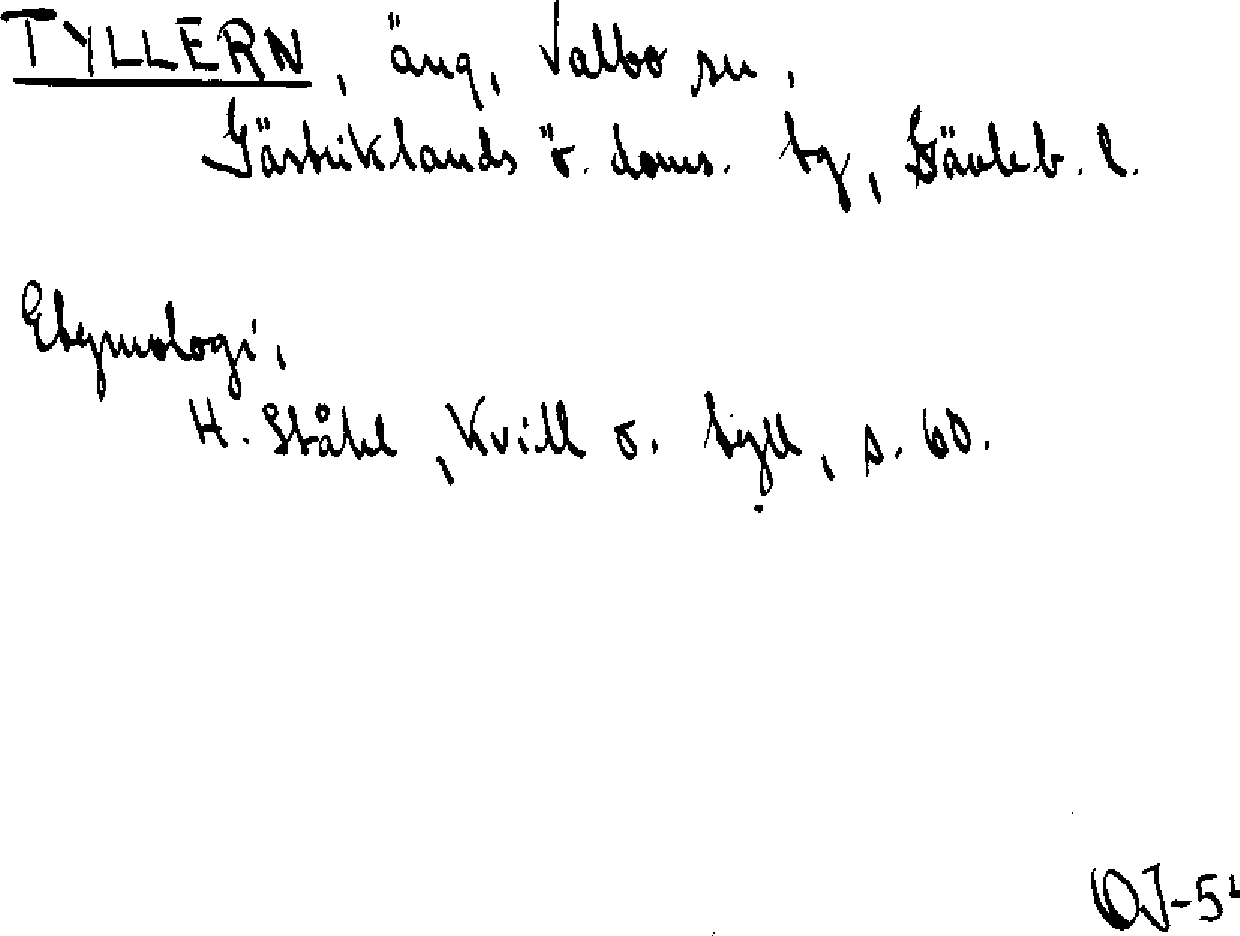 TYLLERN, äng, Valbo sn,
Gästriklands ö. doms. tg, Gävleb. l.
Etymologi,
H. Ståhl, Kvill o. tyll, s. 60.